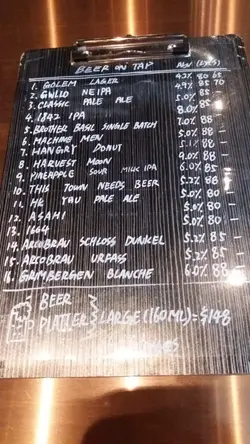 BEER ON TAP ABV (LRG)
1. GOLEM LAGER 4.2% 80 65
2. GWILO NEIPA 4.9% 85 70
3. CLASSIC PALE ALE 5.0% 85
4. 1842 IPA 8.0% 85
5. BROTHER BASIL SINGLE BATCH 7.0% 88
6. MACHINE MEN 5.0% 88
7. HANGRY DONUT 5.1% 88
8. HARVEST MOON 9.0% 88
9. PINEAPPLE SOUR MILK IPA 6.0% 85
10. THIS TOWN NEEDS BEER 5.2% 88
11. HK YAU PALE ALE 5.0% 88 -
12. ASAHI 5.0% 80 -
13. 1664 5.0% 80 -
14. ARCOBRAU SCHLOSS DUNKEL 5.2% 85 -
15. ARCOBRAU URFASS 5.2% 85 -
16. GRIMBERGEN BLANCHE 6.0% 88 -
BEER
PLATTER LARGE (160ML) = $148